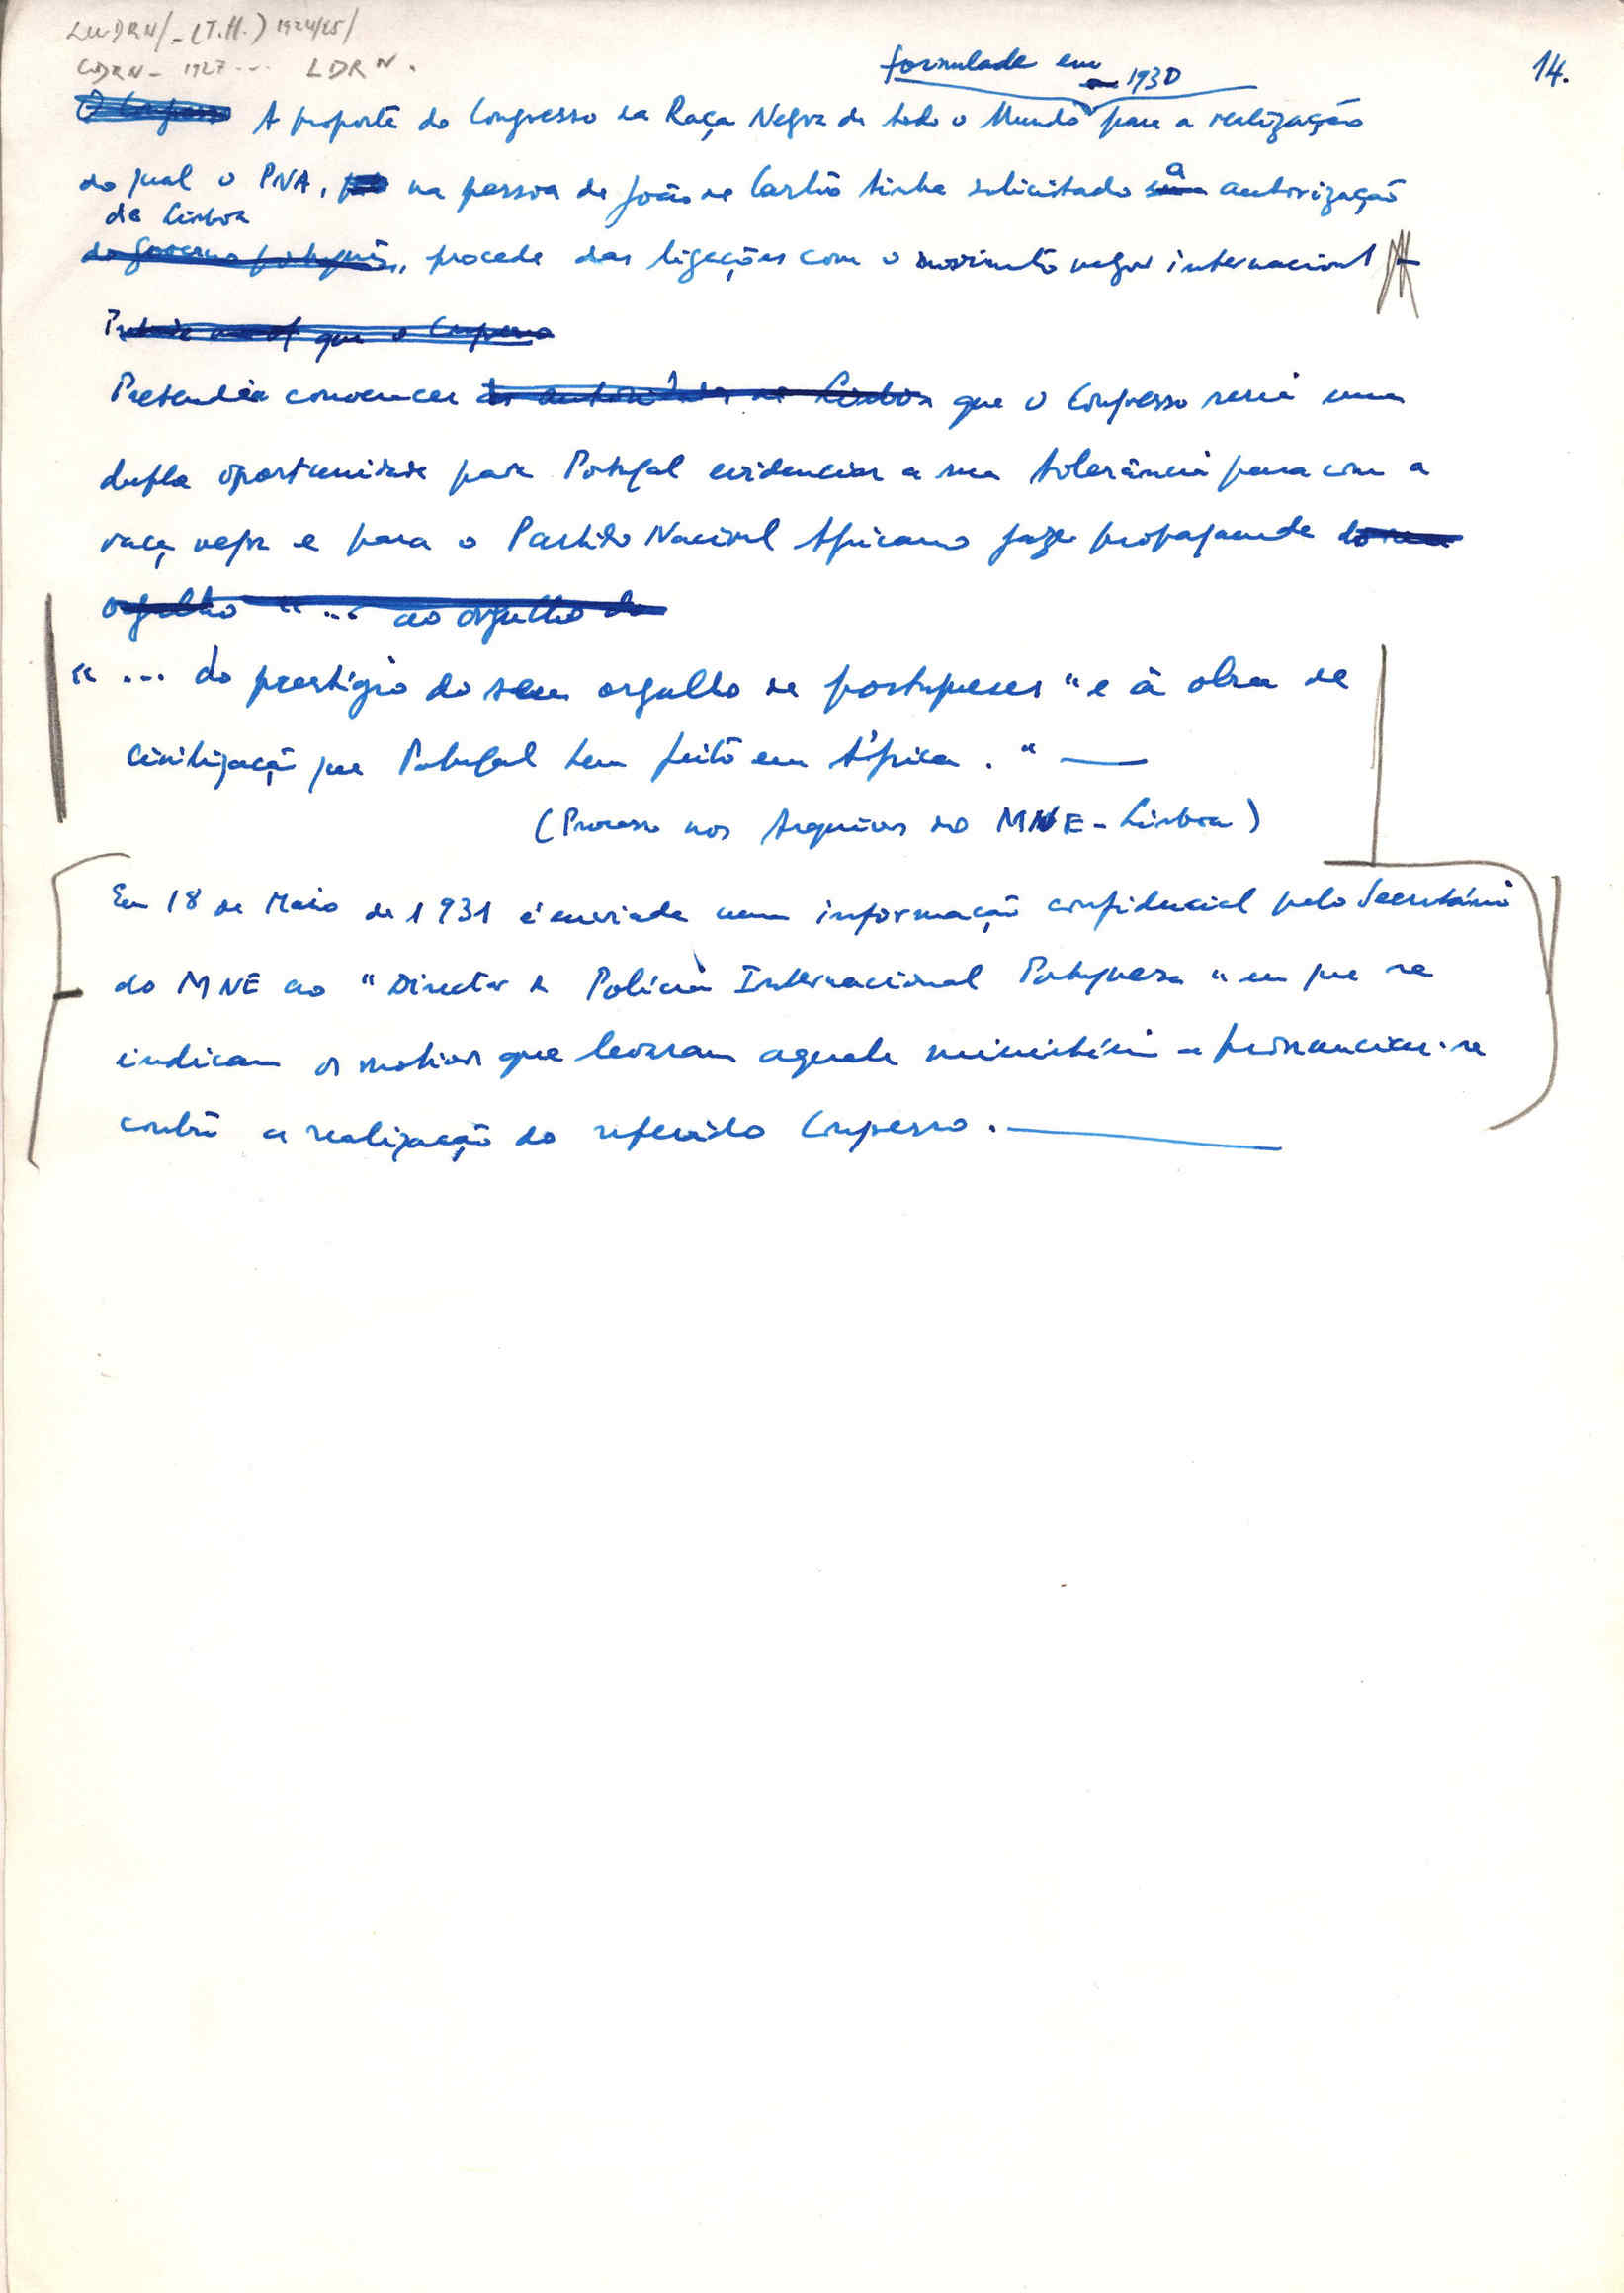 LUDRN/-(T.H.) 1924/25/
CDRN - 1927 ... LDRN.
14.
formulada em 1930
A proposta do Congresso da Raça Negra de todo o Mundo para a realização
do qual o PNA, na pessoa de João de Castro tinha solicitado a autorização
de Lisboa
do governo português, procede das ligações com o movimento negro internacional
que o Congresso
Pretendia convencer as autoridades de Lisboa que o Congresso seria uma
dupla oportunidade para Portugal evidenciar a sua tolerância para com a
raça negra e para o Partido Nacional Africano fazer propaganda do seu
orgulho "... ao orgulho do
"... do prestígio do seu orgulho de portugueses" e à obra de
civilização que Portugal tem feito em África."
(Processo nos Arquivos do MNE - Lisboa)
Em 18 de Maio de 1931 é enviada uma informação confidencial pelo Secretário
do MNE ao "Director da Polícia Internacional Portuguesa" em que se
indicam os motivos que levaram aquele ministério a pronunciar-se
contra a realização do referido Congresso.